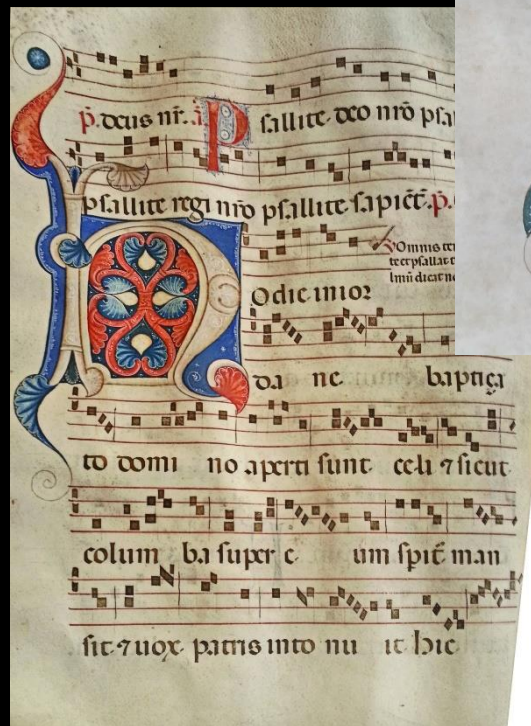 p̄. deus nr̄. ā Psallite deo nr̄o psa
psallite regi nr̄o psallite sapiēt̄. p̄.
V Omnis ter
te et psallat t
lmū dicat no
Odie in ior
da ne baptiça
to domi no aperti sunt celi ⁊ sicut
colum ba super e um spit̄ man
sit ⁊ uox patris into nu it hic